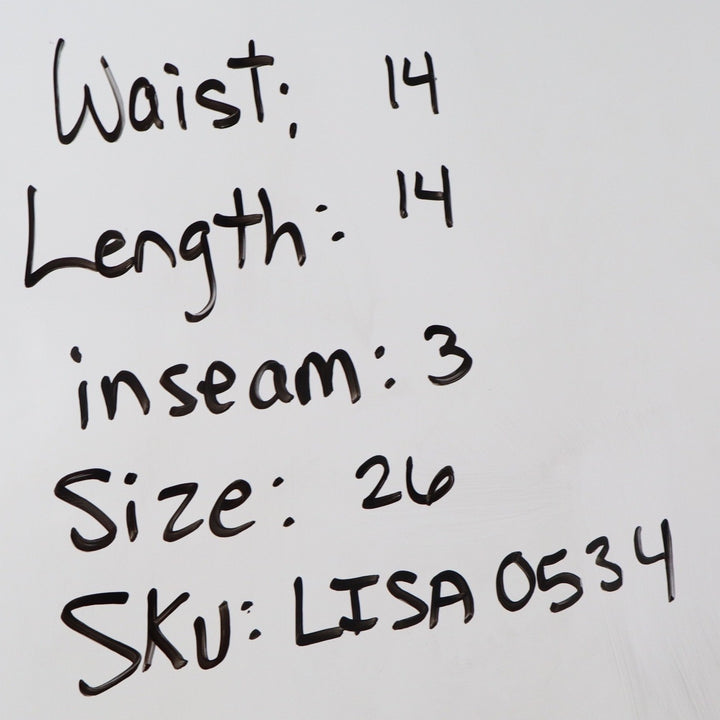 Waist: 14
Length: 14
inseam: 3
Size: 26
SKU: LISA 0534